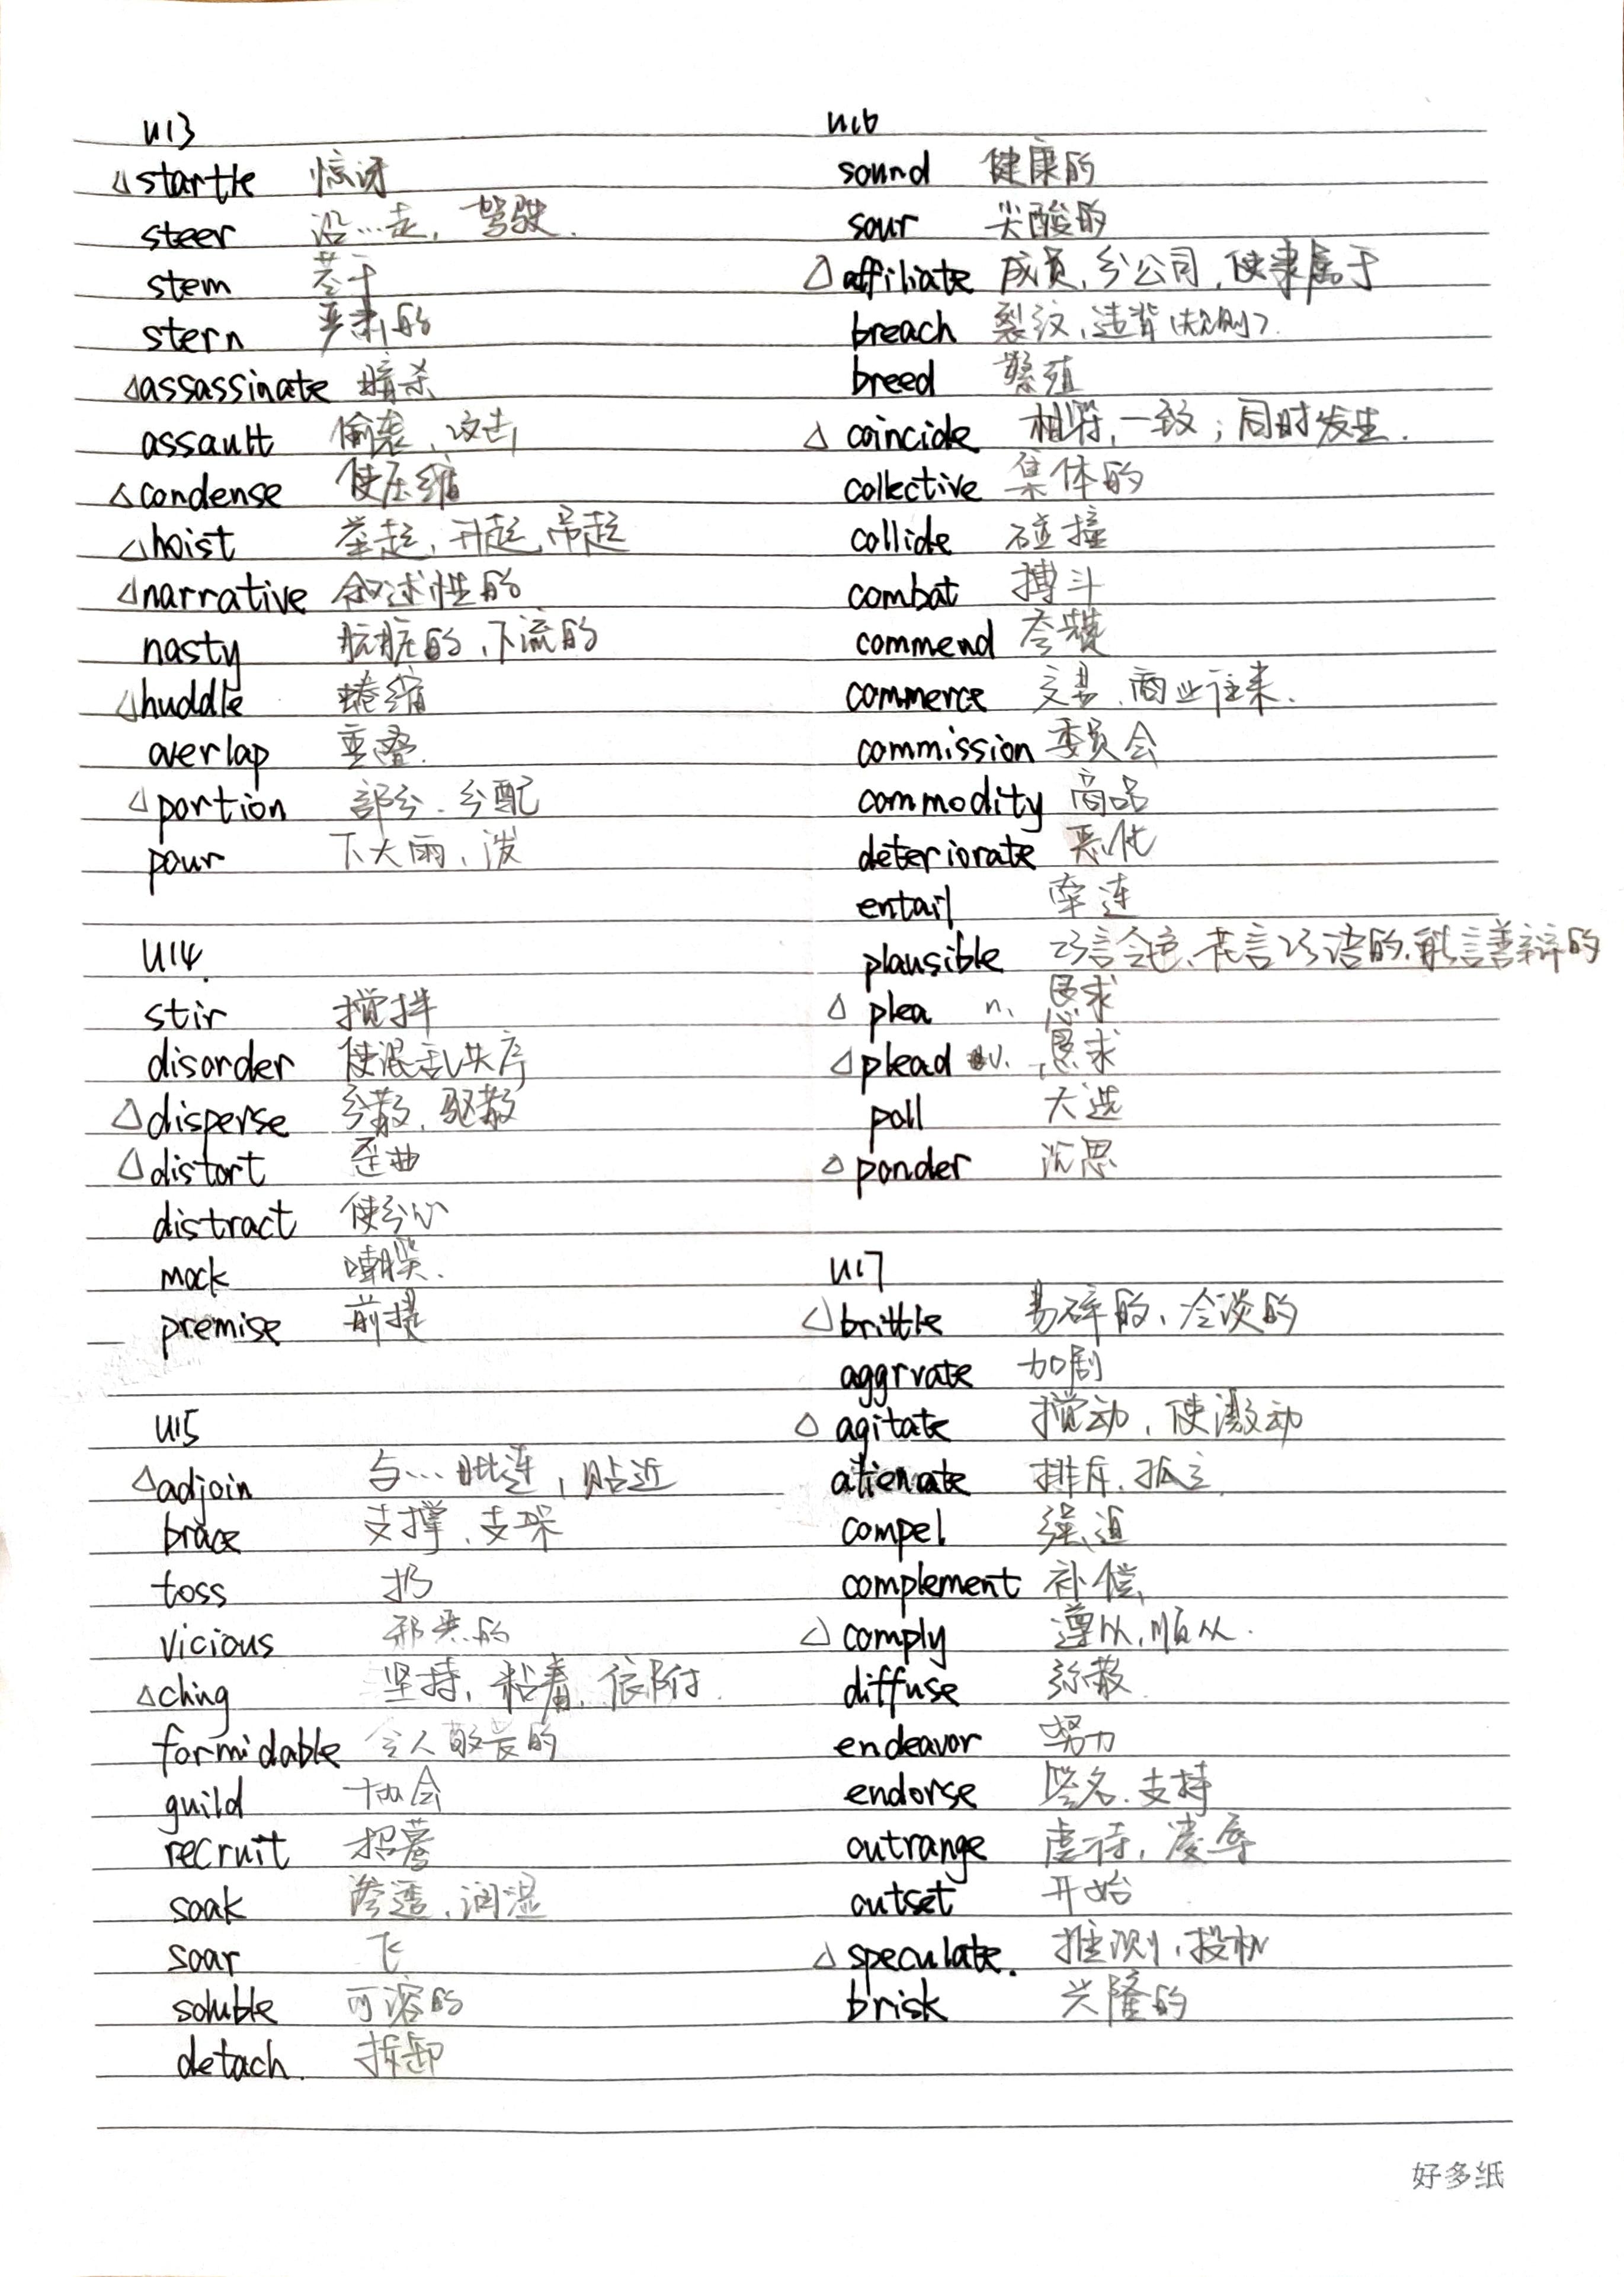 U13
△startle 惊讶
steer 沿…走, 驾驶.
stem 茎干
stern 严肃的
△assassinate 暗杀
assault 偷袭、攻击
△condense 使压缩
△hoist 举起, 升起, 吊起
△narrative 叙述性的
nasty 肮脏的、下流的
△huddle 蜷缩
overlap 重叠.
△portion 部分. 分配
pour 下大雨、泼
U14.
stir 搅拌
disorder 使混乱失序
△disperse 分散, 驱散
△distort 歪曲
distract 使分心
mock 嘲笑.
premise 前提
U15
△adjoin 与…毗连, 贴近
brace 支撑、支架
toss 扔
vicious 邪恶的
△ching 坚持, 粘着, 依附
formidable 令人敬畏的
guild 协会
recruit 招募
soak 渗透、润湿
soar 飞
soluble 可溶的
detach. 拆卸
U16
sound 健康的
sour 尖酸的
△affiliate 成员, 分公司, 使隶属于
breach 裂纹, 违背(规则).
breed 繁殖
△coincide 相符, 一致; 同时发生.
collective 集体的
collide 碰撞
combat 搏斗
commend 夸赞
commerce 交易、商业往来.
commission 委员会
commodity 商品
deteriorate 恶化
entail 牵连
plausible 巧言令色、花言巧语的, 能言善辩的
△plea n. 恳求
△plead v. 恳求
poll 大选
△ponder 沉思
U17
△brittle 易碎的、冷淡的
aggrvate 加剧
△agitate 搅动, 使激动
alienate 排斥. 孤立
compel 强迫
complement 补偿
△comply 遵从, 顺从.
diffuse 弥散
endeavor 努力
endorse 签名. 支持
outrange 虐待, 凌辱
outset 开始
△speculate. 推测, 投机
brisk 兴隆的
好多纸